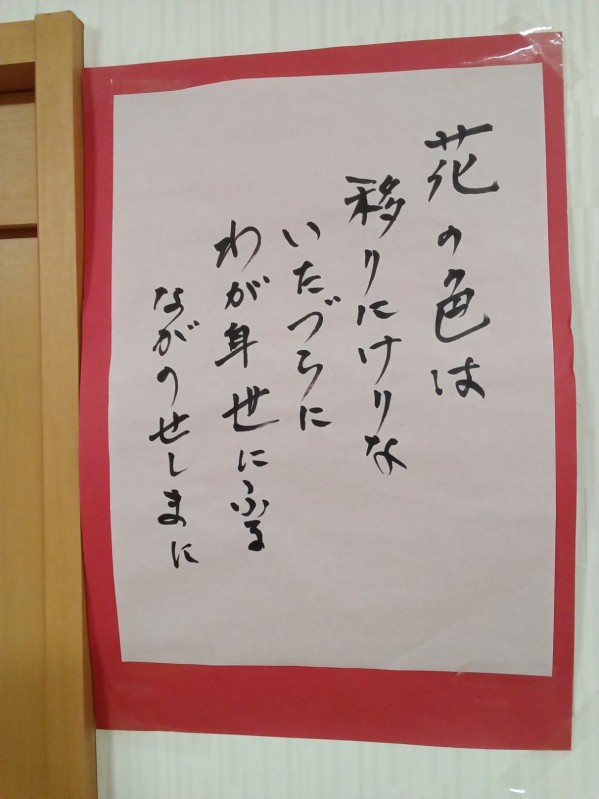 花の色は
移りにけりな
いたづらに
わが身世にふる
ながのせしまに